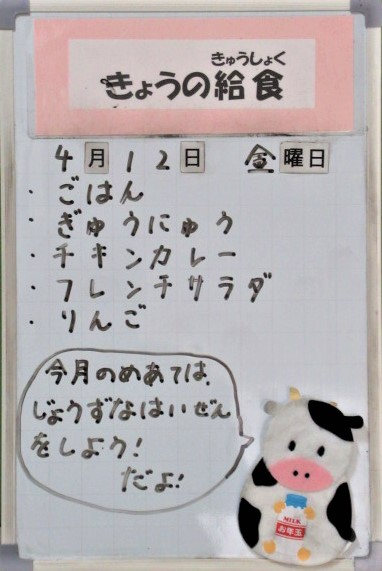 きゅうしょく
きょうの給食
4月12日 金曜日
・ごはん
・ぎゅうにゅう
・チキンカレー
・フレンチサラダ
・りんご
今月のめあては、
じょうずなはいぜん
をしよう!
だよ!
MILK
お年玉